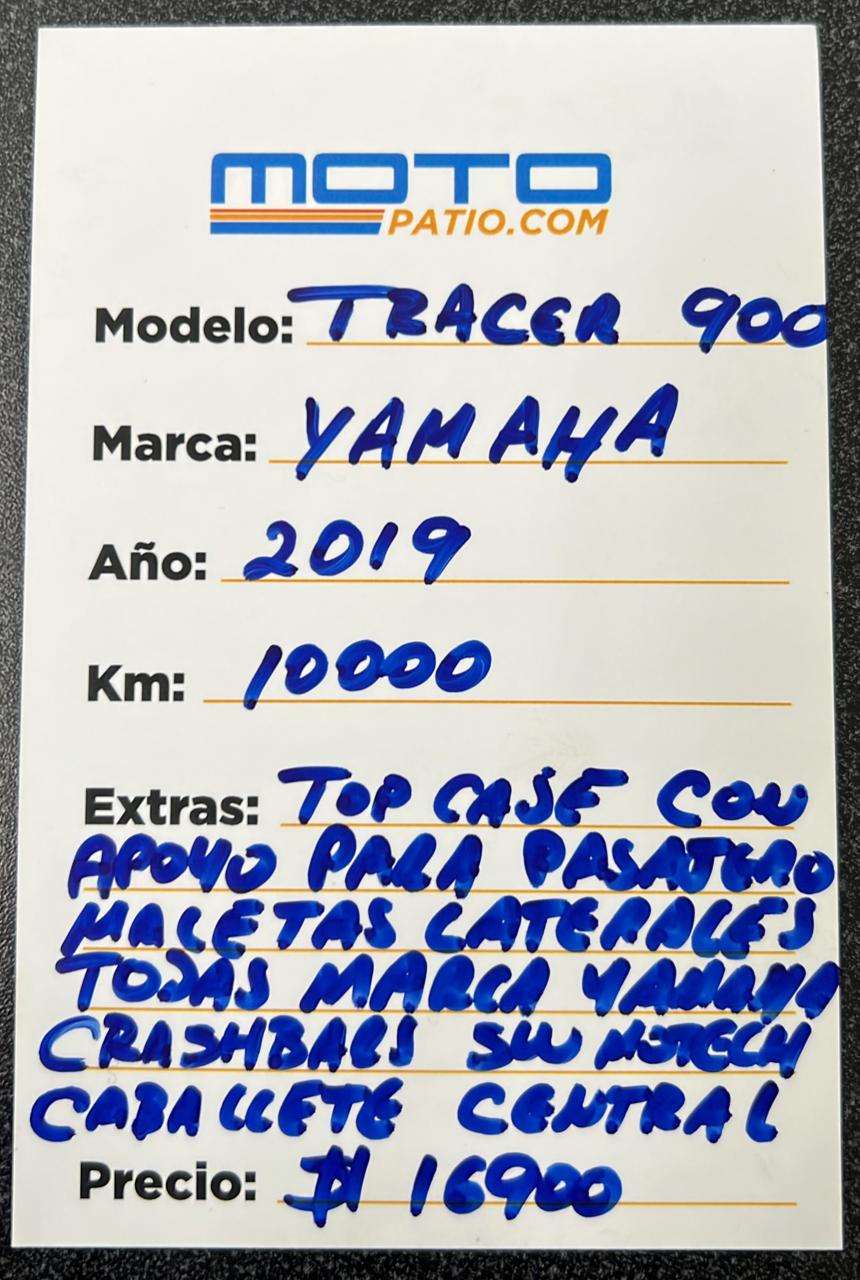 MOTO
PATIO.COM
Modelo: TRACER 900
Marca: YAMAHA
Año: 2019
Km: 10000
Extras: TOP CASE CON
APOYO PARA PASAJERO
MALETAS LATERALES
TODAS MARCA YAMAHA
CRASHBARS SW MOTECH
CABALLETE CENTRAL
Precio: $ 16900